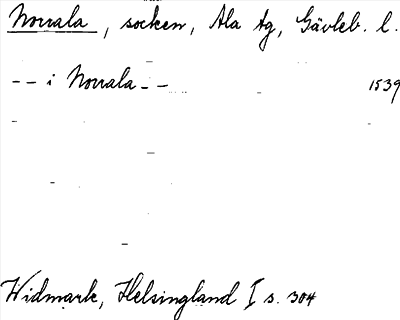 Norrala, socken, Ala tg, Gävleb. l.
-- i Norrala -- 1539
Widmark, Helsingland I s. 304